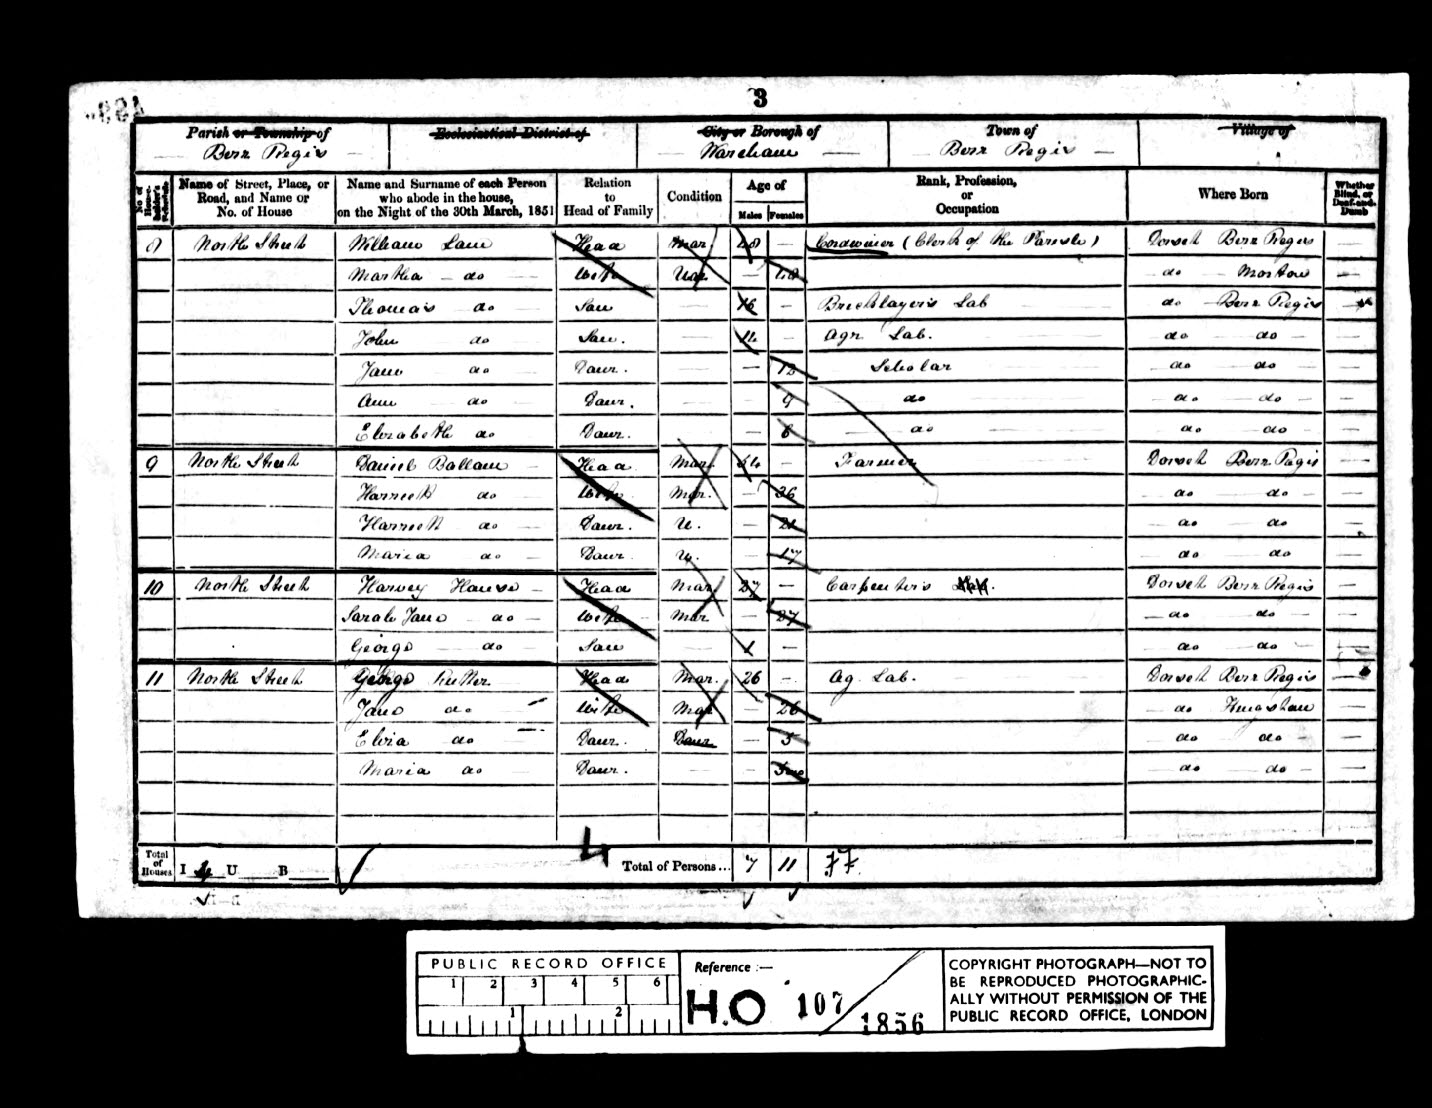 3
Parish or Township of Ecclesiastical District of City or Borough of Town of Village of
Berr Regis Wareham Berr Regis
No. of House-holder's Schedule Name of Street, Place, or Road, and Name or No. of House Name and Surname of each Person who abode in the house, on the Night of the 30th March, 1851 Relation to Head of Family Condition Age of Males Females Rank, Profession, or Occupation Where Born Whether Blind, or Deaf-and-Dumb
8 North Street William Lane Head Mar. 48 — Cordwainer (Clerk of the Parish) Dorset Berr Regis —
Martha do Wife Mar — 48 do Moreton —
Thomas do Son 16 — Bricklayer's Lab do Berr Regis
John do Son. 14 — Agr Lab. do do —
Jane do Daur. — 12 Scholar do do —
Ann do Daur. — 9 do do do —
Elizabeth do Daur. — 6 do do do —
9 North Street Daniel Ballam Head Mar. 54 — Farmer Dorset Berr Regis —
Harriett do Wife Mar. — do do —
Harriett do Daur. U. — 21 do do —
Maria do Daur U. — 17 do do —
10 North Street Harvey House Head Mar 27 — Carpenter's Lab. Dorset Berr Regis —
Sarah Jane do Wife Mar — 27 do do —
George do Son — 1 — do do —
11 North Street George Head Mar. 26 — Ag. Lab. Dorset Berr Regis
Jane do Wife Mar — 26 do —
do Daur. Daur — 5 do do —
Maria do Daur. — — do do —
Total of Houses I 4 U B 4 Total of Persons... 7 11
PUBLIC RECORD OFFICE
1 2 3 4 5 6
1 2
Reference :—
H.O 107 / 1856
COPYRIGHT PHOTOGRAPH—NOT TO
BE REPRODUCED PHOTOGRAPHIC-
ALLY WITHOUT PERMISSION OF THE
PUBLIC RECORD OFFICE, LONDON